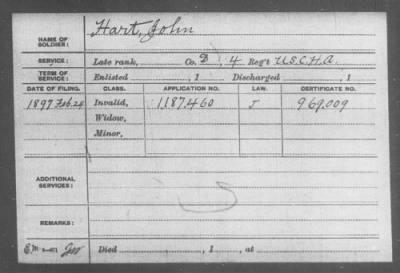 NAME OF SOLDIER: Hart, John
SERVICE: Late rank, Co. D, 4 Reg't U.S.C.H.A.
TERM OF SERVICE: Enlisted , 1 Discharged , 1
DATE OF FILING. CLASS. APPLICATION NO. LAW. CERTIFICATE NO.
1897 Feb. 24 Invalid, 1,187,460 J 969,009
Widow,
Minor,
ADDITIONAL SERVICES:
REMARKS:
Died , 1 , at